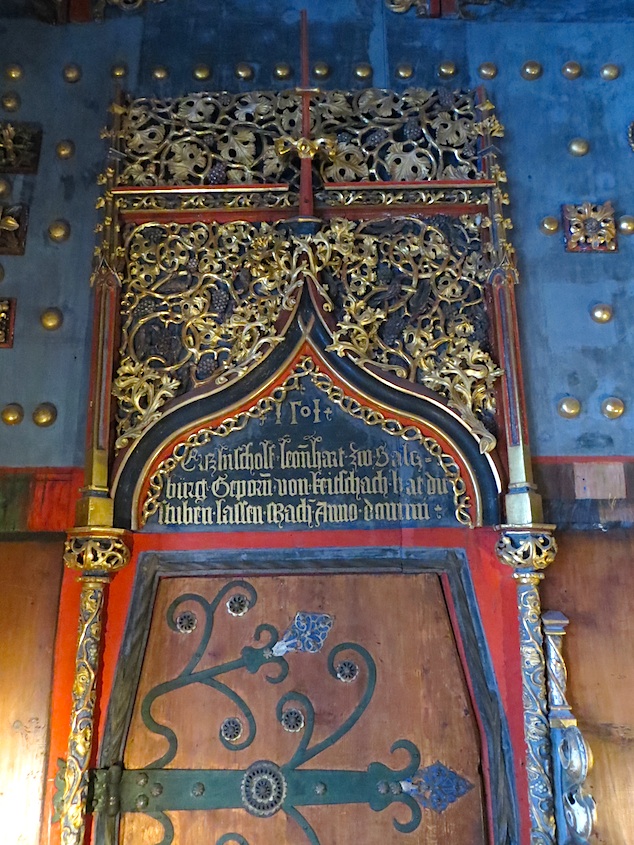 1501
Ertzbischof leonhart zw Saltz-
burg Geporn von keitschach hat die
stuben lassen Mach Anno domini